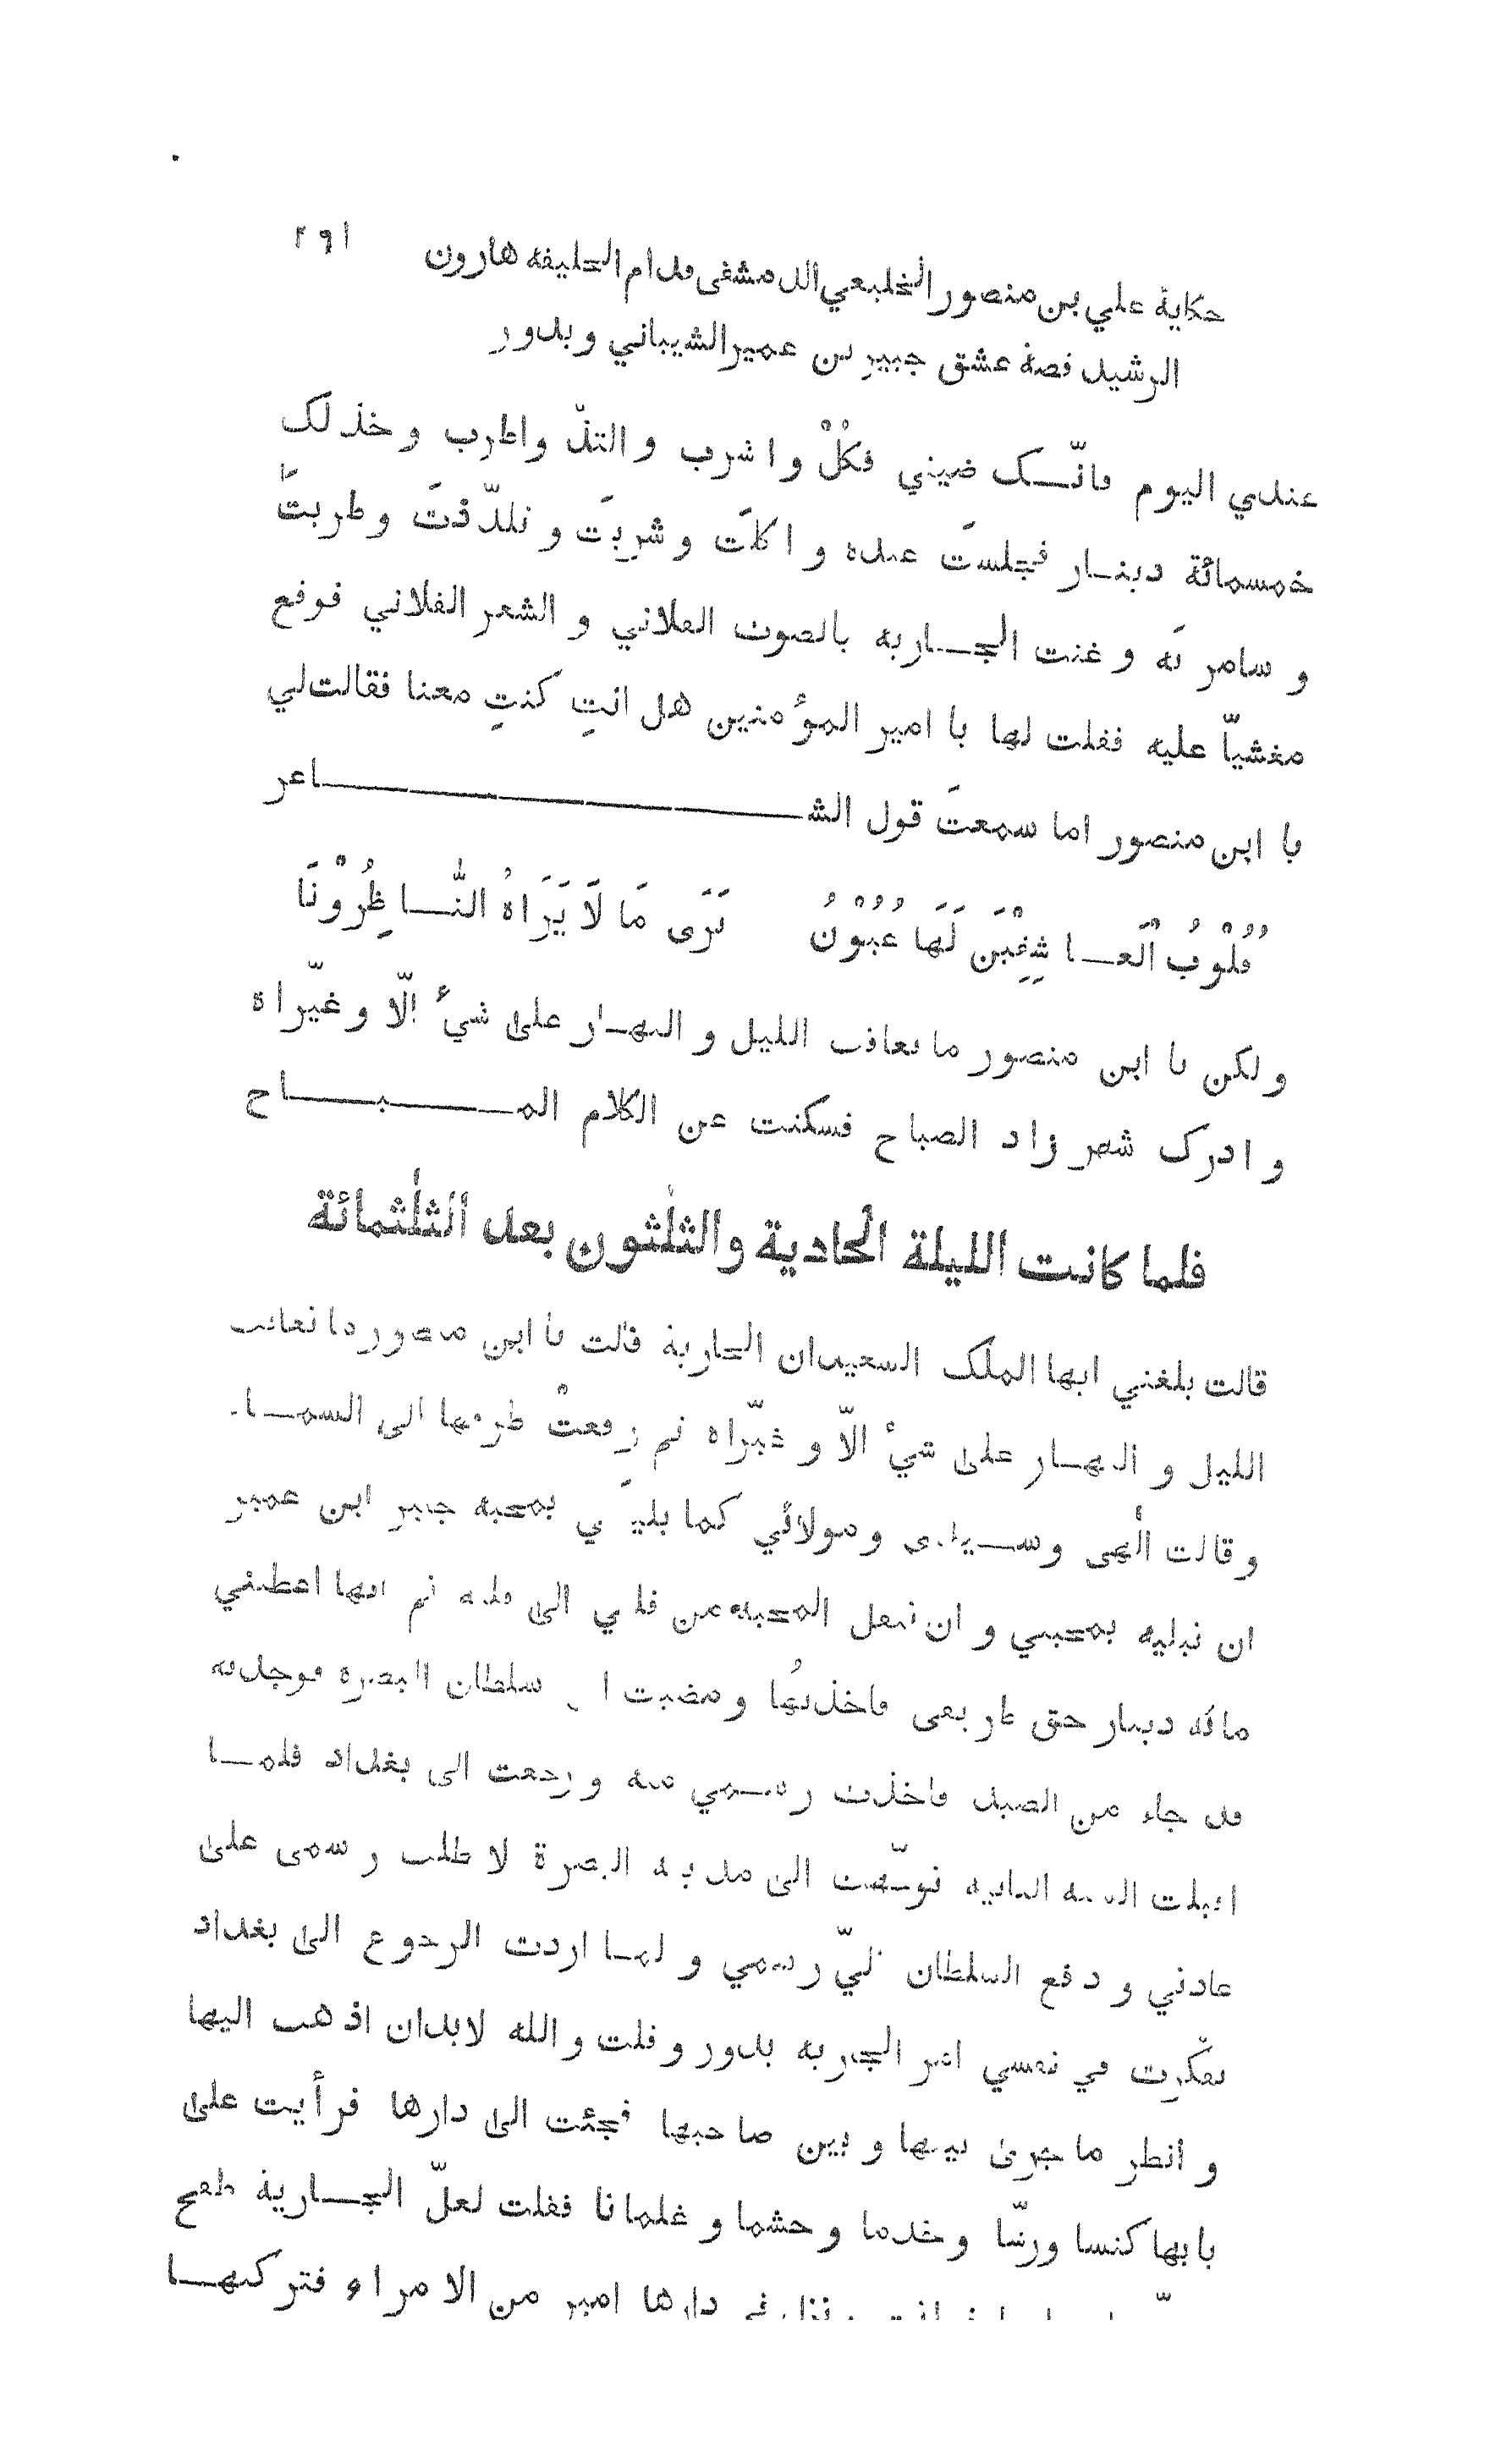 حكاية علي بن منصور الخليعي الدمشقي قدام الخليفه هارون ٢٩١
الرشيد قصة عشق جبير بن عمير الشيباني وبدور
عندي اليوم فانّك ضيني فكُلْ واشرب والتذّ واطرب وخذ لك
خمسمائة دينار فجلستَ عنده واكلتَ وشربتَ وتلذّذتَ وطربتَ
و سامرته و غنت الجاريه بالصوت الفلاني و الشعر الفلاني فوقع
مغشيّاً عليه فقلت لها يا امير المؤمنين هل انتِ كنتِ معنا فقالت لي
يا ابن منصور اما سمعتَ قول الشاعر
قُلُوْبُ الْعَاشِقِيْنَ لَهَا عُيُوْنُ تَرَى مَا لَا يَرَاهُ النَّاظِرُوْنَا
ولكن يا ابن منصور ما تعاقب الليل و النهار على شئ الّا و غيّراه
و ادرك شهر زاد الصباح فسكتت عن الكلام المباح
فلما كانت الليلة الحادية والثلثون بعد الثلثمائة
قالت بلغني ايها الملك السعيد ان الجارية قالت يا ابن منصور ما تعاقب
الليل و النهار على شئ الّا و غيّراه ثم رفعتْ طرفها الى السما
وقالت الهي وسيدي ومولائي كما بليتني بمحبه جبير ابن عمير
ان تبليه بمحبتي و ان تنقل المحبه من قلبي الى قلبه ثم انها اعطتني
مائه دينار حق طريقي فاخذتها ومضيت الى سلطان البصرة فوجدته
قد جاء من الصيد فاخذت رسمي منه ورجعت الى بغداد فلما
اقبلت السنه الثانيه توجّهت الى مدينه البصرة لاطلب رسمي على
عادتي و دفع السلطان اليّ رسمي و لما اردت الرجوع الى بغداد
تفكّرت في نفسي امر الجاريه بدور وقلت والله لابد ان اذهب اليها
و انظر ما جرى بينها و بين صاحبها فجئت الى دارها فرأيت على
بابها كنسا ورشّا وخدما وحشما و غلمانا فقلت لعلّ الجارية طفح
في دارها امير من الامراء فتركتها